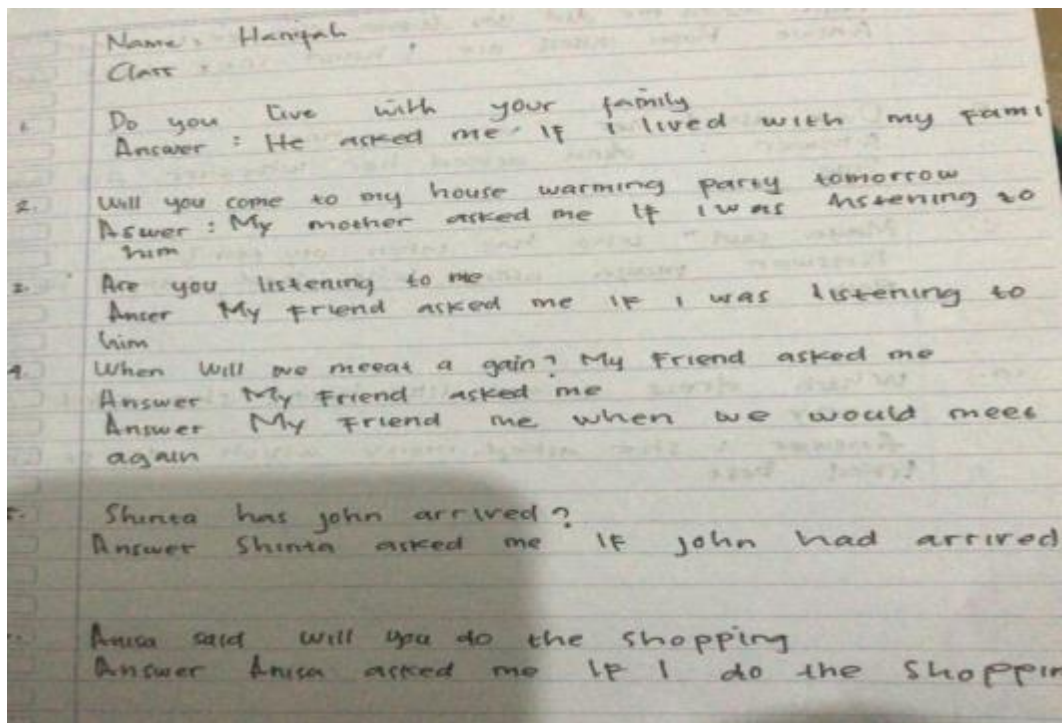 Name : Haniqah
Class
1. Do you live with your family
Answer : He asked me If I lived with my fami
2. Will you come to my house warming party tomorrow
Aswer : My mother asked me If I was listening to
him
3. Are you listening to me
Anser My Friend asked me IF I was listening to
him
4. When Will we meeat a gain? My Friend asked me
Answer My Friend asked me
Answer My Friend me when we would meet
again
Shinta has john arrived ?
Answer Shinta asked me IF john had arrived
Anisa said will you do the shopping
Answer Anisa asked me IF I do the Shoppin